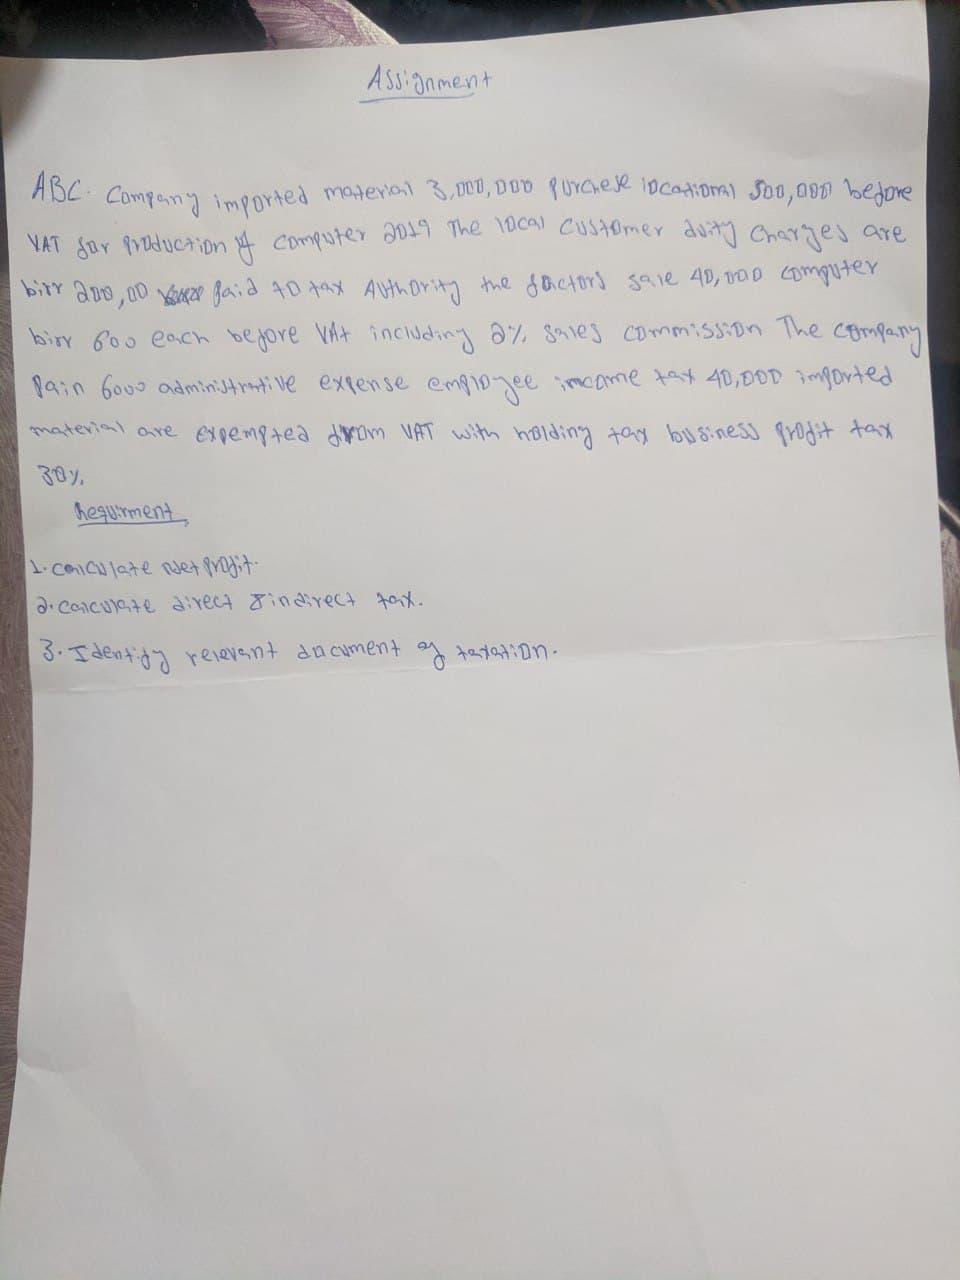 Assignment
ABC. Company imported material 3,000,000 purchese locational 500,000 before
VAT for production of computer 2019 The local customer duity charges are
birr 200,00 paid to tax Authority the factors sale 40,000 computer
birr 600 each before VAt including 2% sales commission The company
pain 6000 administrative expense employee income tax 40,000 imported
material are expempted from VAT with holding tax business profit tax
30%.
Requirment
1. calculate Net profit.
2. calculate direct & indirect tax.
3. Identify relevant document of taxation.